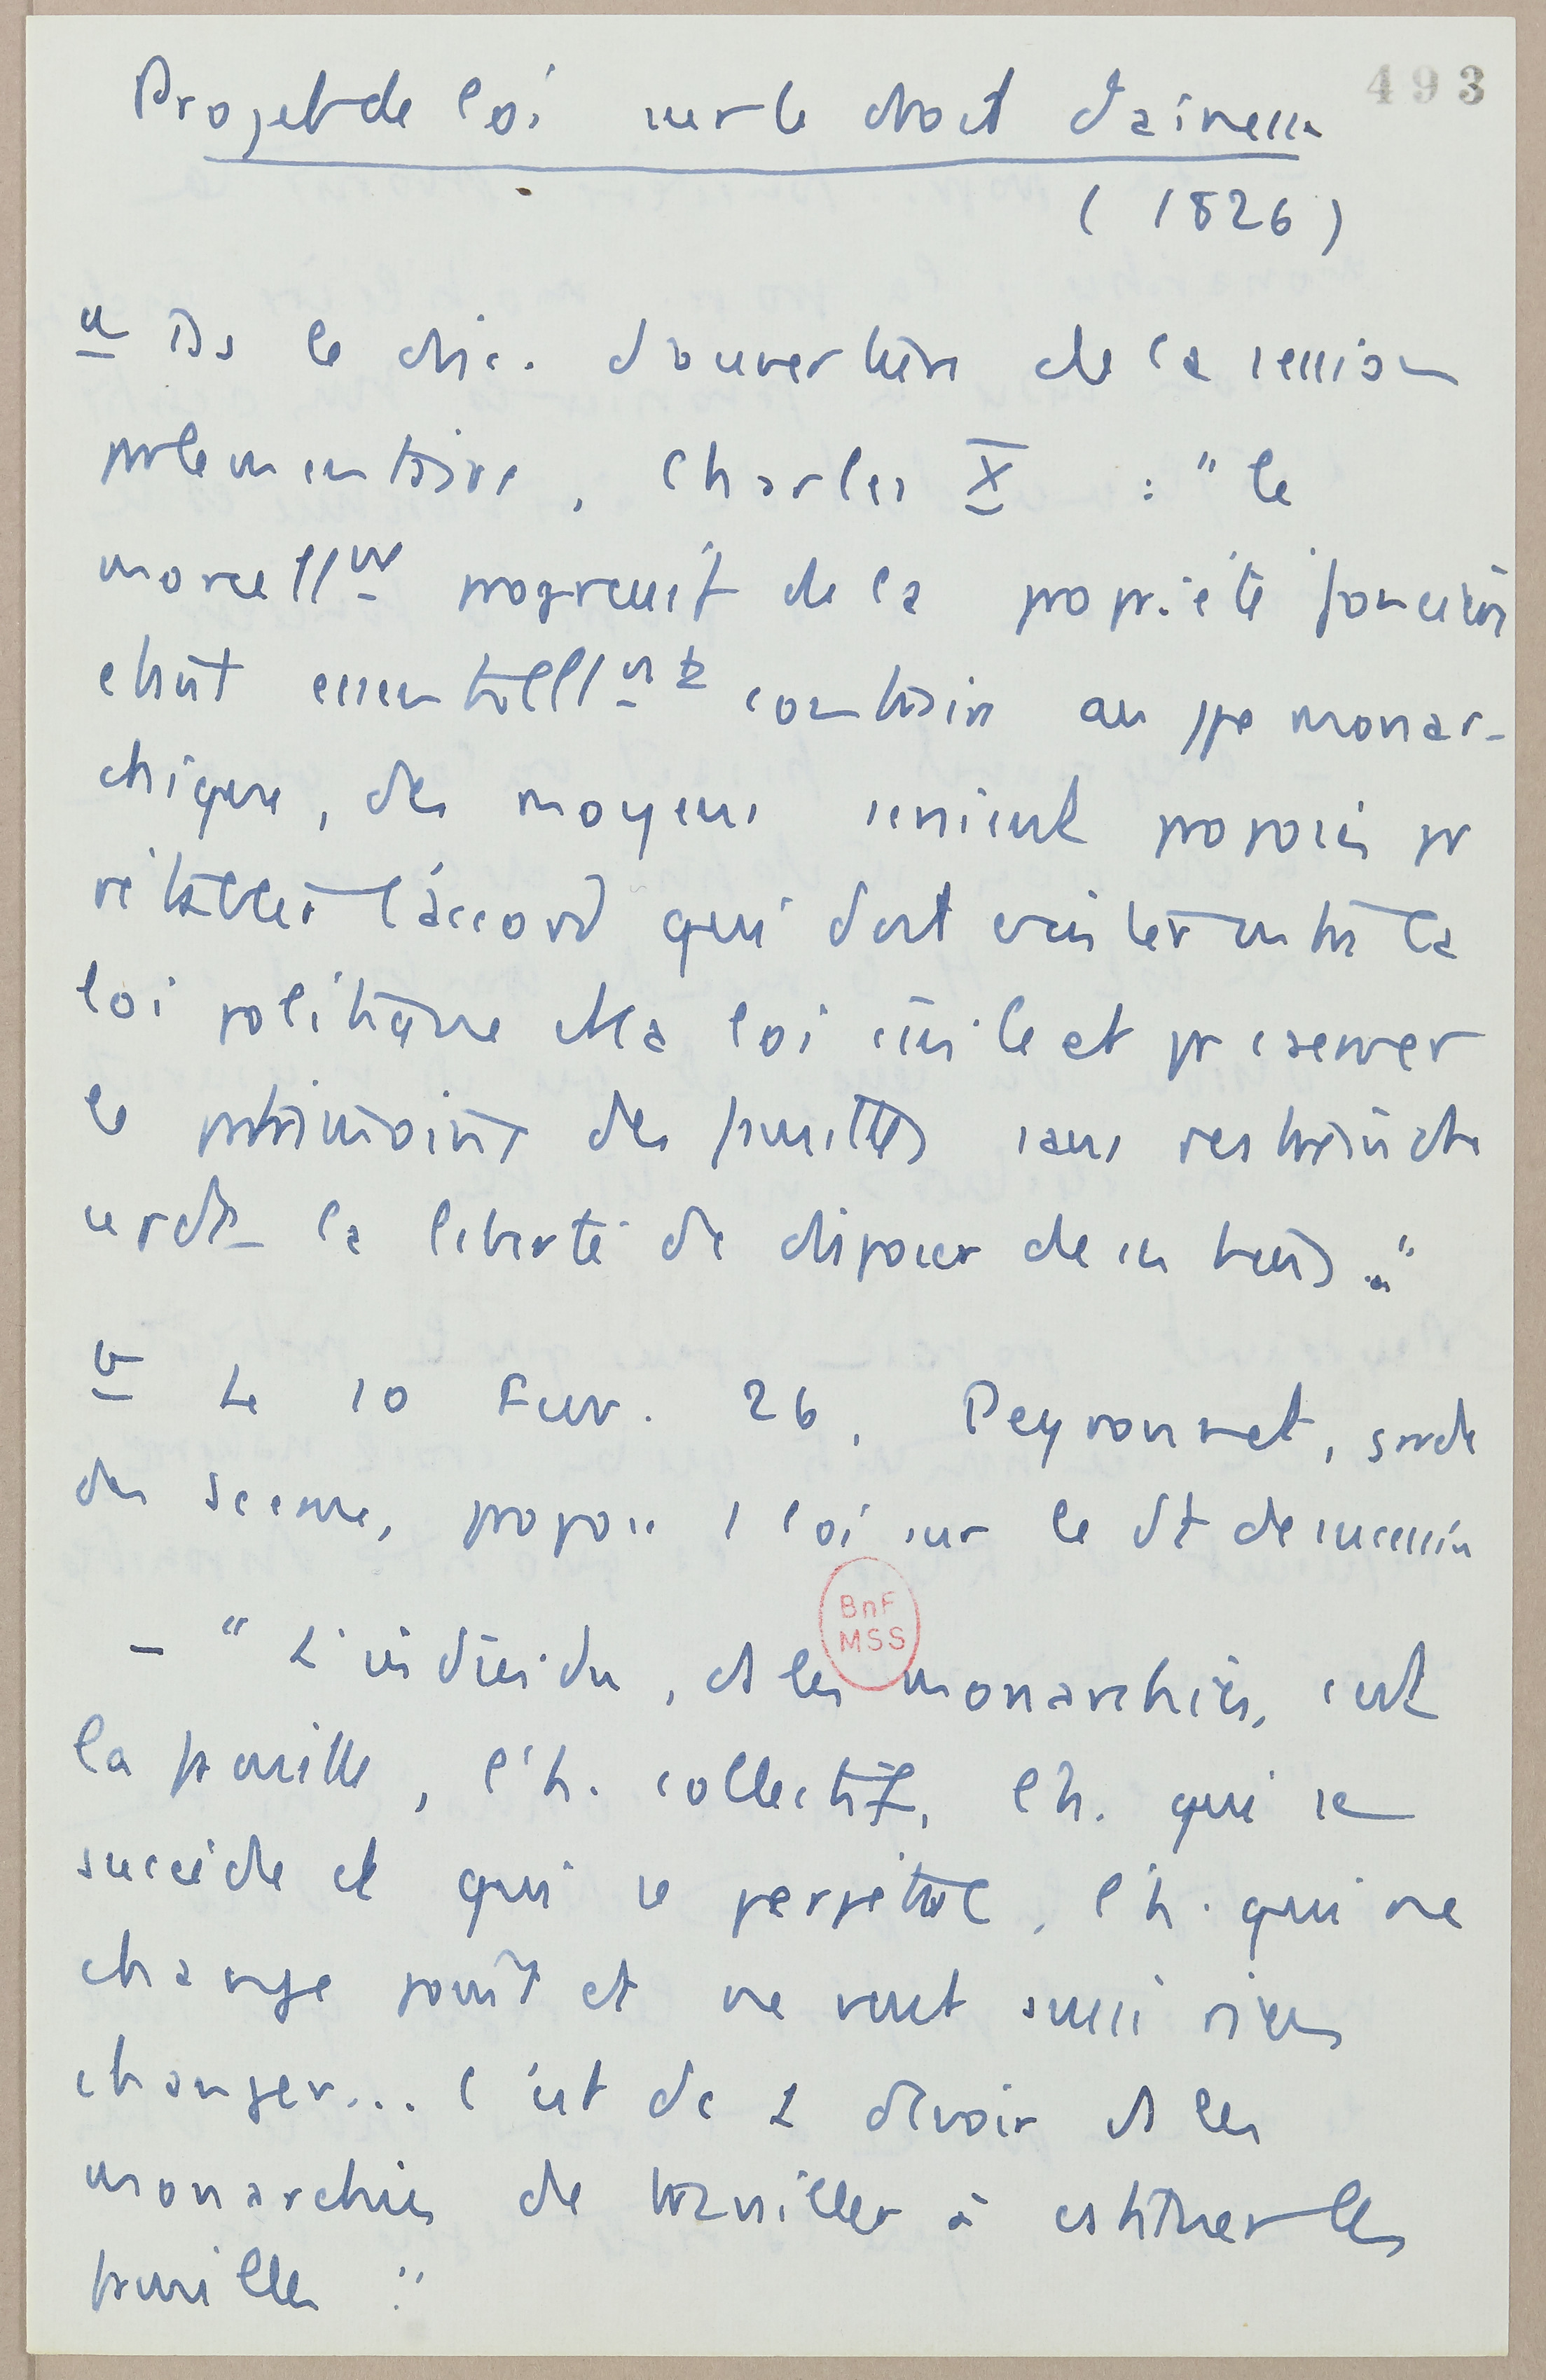 493
Projet de loi sur le droit d'ainesse
(1826)
a Ds le disc. d'ouverture de la session
parlementaire, Charles X : "le
morcellmt progressif de la propriété foncière
étant essentiellmt contraire au ppe monar-
chique, des moyens seraient proposés pr
rétablir l'accord qui doit exister entre la
loi politique et la loi civile et pr conserver
le patrimoine des familles sans restreindre
cepdt la liberté de disposer de ses biens."
b Le 10 Fevr. 26, Peyronnet, garde
des sceaux, propose 1 loi sur le dt de succession
- "L'individu, ds les monarchies, c'est
la famille, l'h. collectif, l'h. qui se
succède et qui se perpétue, l'h. qui ne
change point et ne veut aussi rien
changer... C'est dc 1 devoir ds les
monarchies de travailler à
familles."
BnF
MSS